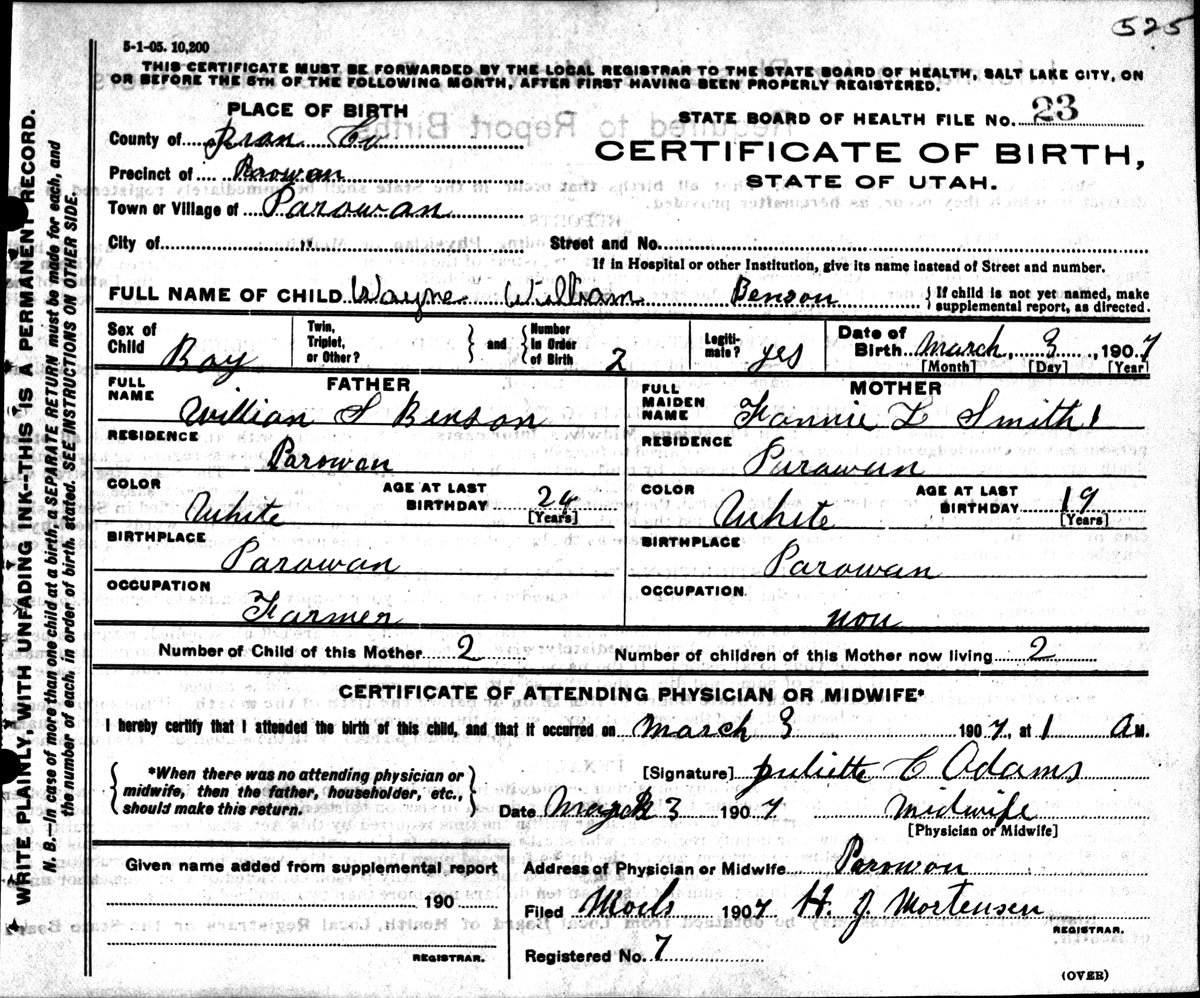 525
5-1-05. 10,200
THIS CERTIFICATE MUST BE FORWARDED BY THE LOCAL REGISTRAR TO THE STATE BOARD OF HEALTH, SALT LAKE CITY, ON
OR BEFORE THE 5TH OF THE FOLLOWING MONTH, AFTER FIRST HAVING BEEN PROPERLY REGISTERED.
PLACE OF BIRTH
County of Iran Co
Precinct of Parowan
Town or Village of Parowan
City of "
STATE BOARD OF HEALTH FILE NO. 23
CERTIFICATE OF BIRTH,
STATE OF UTAH.
Street and No.
If in Hospital or other Institution, give its name instead of Street and number.
FULL NAME OF CHILD Wayne William Benson { If child is not yet named, make
supplemental report, as directed.
Sex of Child Boy
Twin, Triplet, or Other? } and { Number In Order of Birth 2
Legiti- mate? yes
Date of Birth March 3, 1907
[Month] [Day] [Year]
FATHER
FULL NAME William S Benson
RESIDENCE Parowan
COLOR White
AGE AT LAST BIRTHDAY 24
[Years]
BIRTHPLACE Parowan
OCCUPATION Farmer
MOTHER
FULL MAIDEN NAME Fannie L Smith
RESIDENCE Parowan
COLOR White
AGE AT LAST BIRTHDAY 19
[Years]
BIRTHPLACE Parowan
OCCUPATION non
Number of Child of this Mother 2 Number of children of this Mother now living 2
CERTIFICATE OF ATTENDING PHYSICIAN OR MIDWIFE*
I hereby certify that I attended the birth of this child, and that it occurred on March 3 1907, at 1 A M.
{ *When there was no attending physician or
midwife, then the father, householder, etc.,
should make this return. }
[Signature] Juliette C Adams
Date March 3 1907 Midwife
[Physician or Midwife]
Given name added from supplemental report
190
REGISTRAR.
Address of Physician or Midwife Parowan
Filed 1907 H. J Mortensen
REGISTRAR.
Registered No. 7
(OVER)
WRITE PLAINLY, WITH UNFADING INK--THIS IS A PERMANENT RECORD.
N. B.—In case of more than one child at a birth, a SEPARATE RETURN must be made for each, and
the number of each, in order of birth, stated. SEE INSTRUCTIONS ON OTHER SIDE.